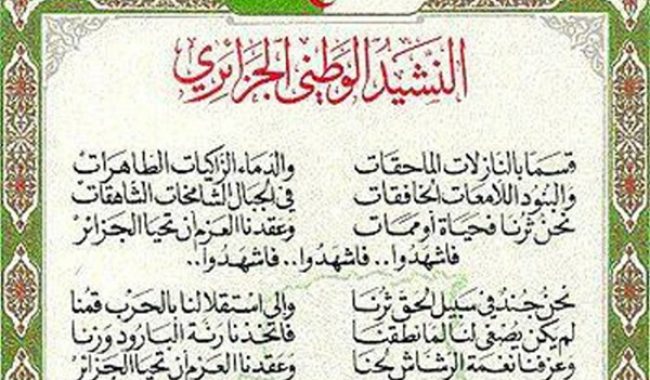 النشيد الوطني الجزائري
قسما بالنازلات الماحقات والدماء الزاكيات الطاهرات
والبنود اللامعات الخافقات في الجبال الشامخات الشاهقات
نحن ثرنا فحياة أو ممات وعقدنا العزم أن تحيا الجزائر
فاشهدوا.. فاشهدوا.. فاشهدوا..
نحن جند في سبيل الحق ثرنا وإلى استقلالنا بالحرب قمنا
لم يكن يصغى لنا لما نطقنا فاتخذنا رنة البارود وزنا
وعزفنا نغمة الرشاش لحنا وعقدنا العزم أن تحيا الجزائر